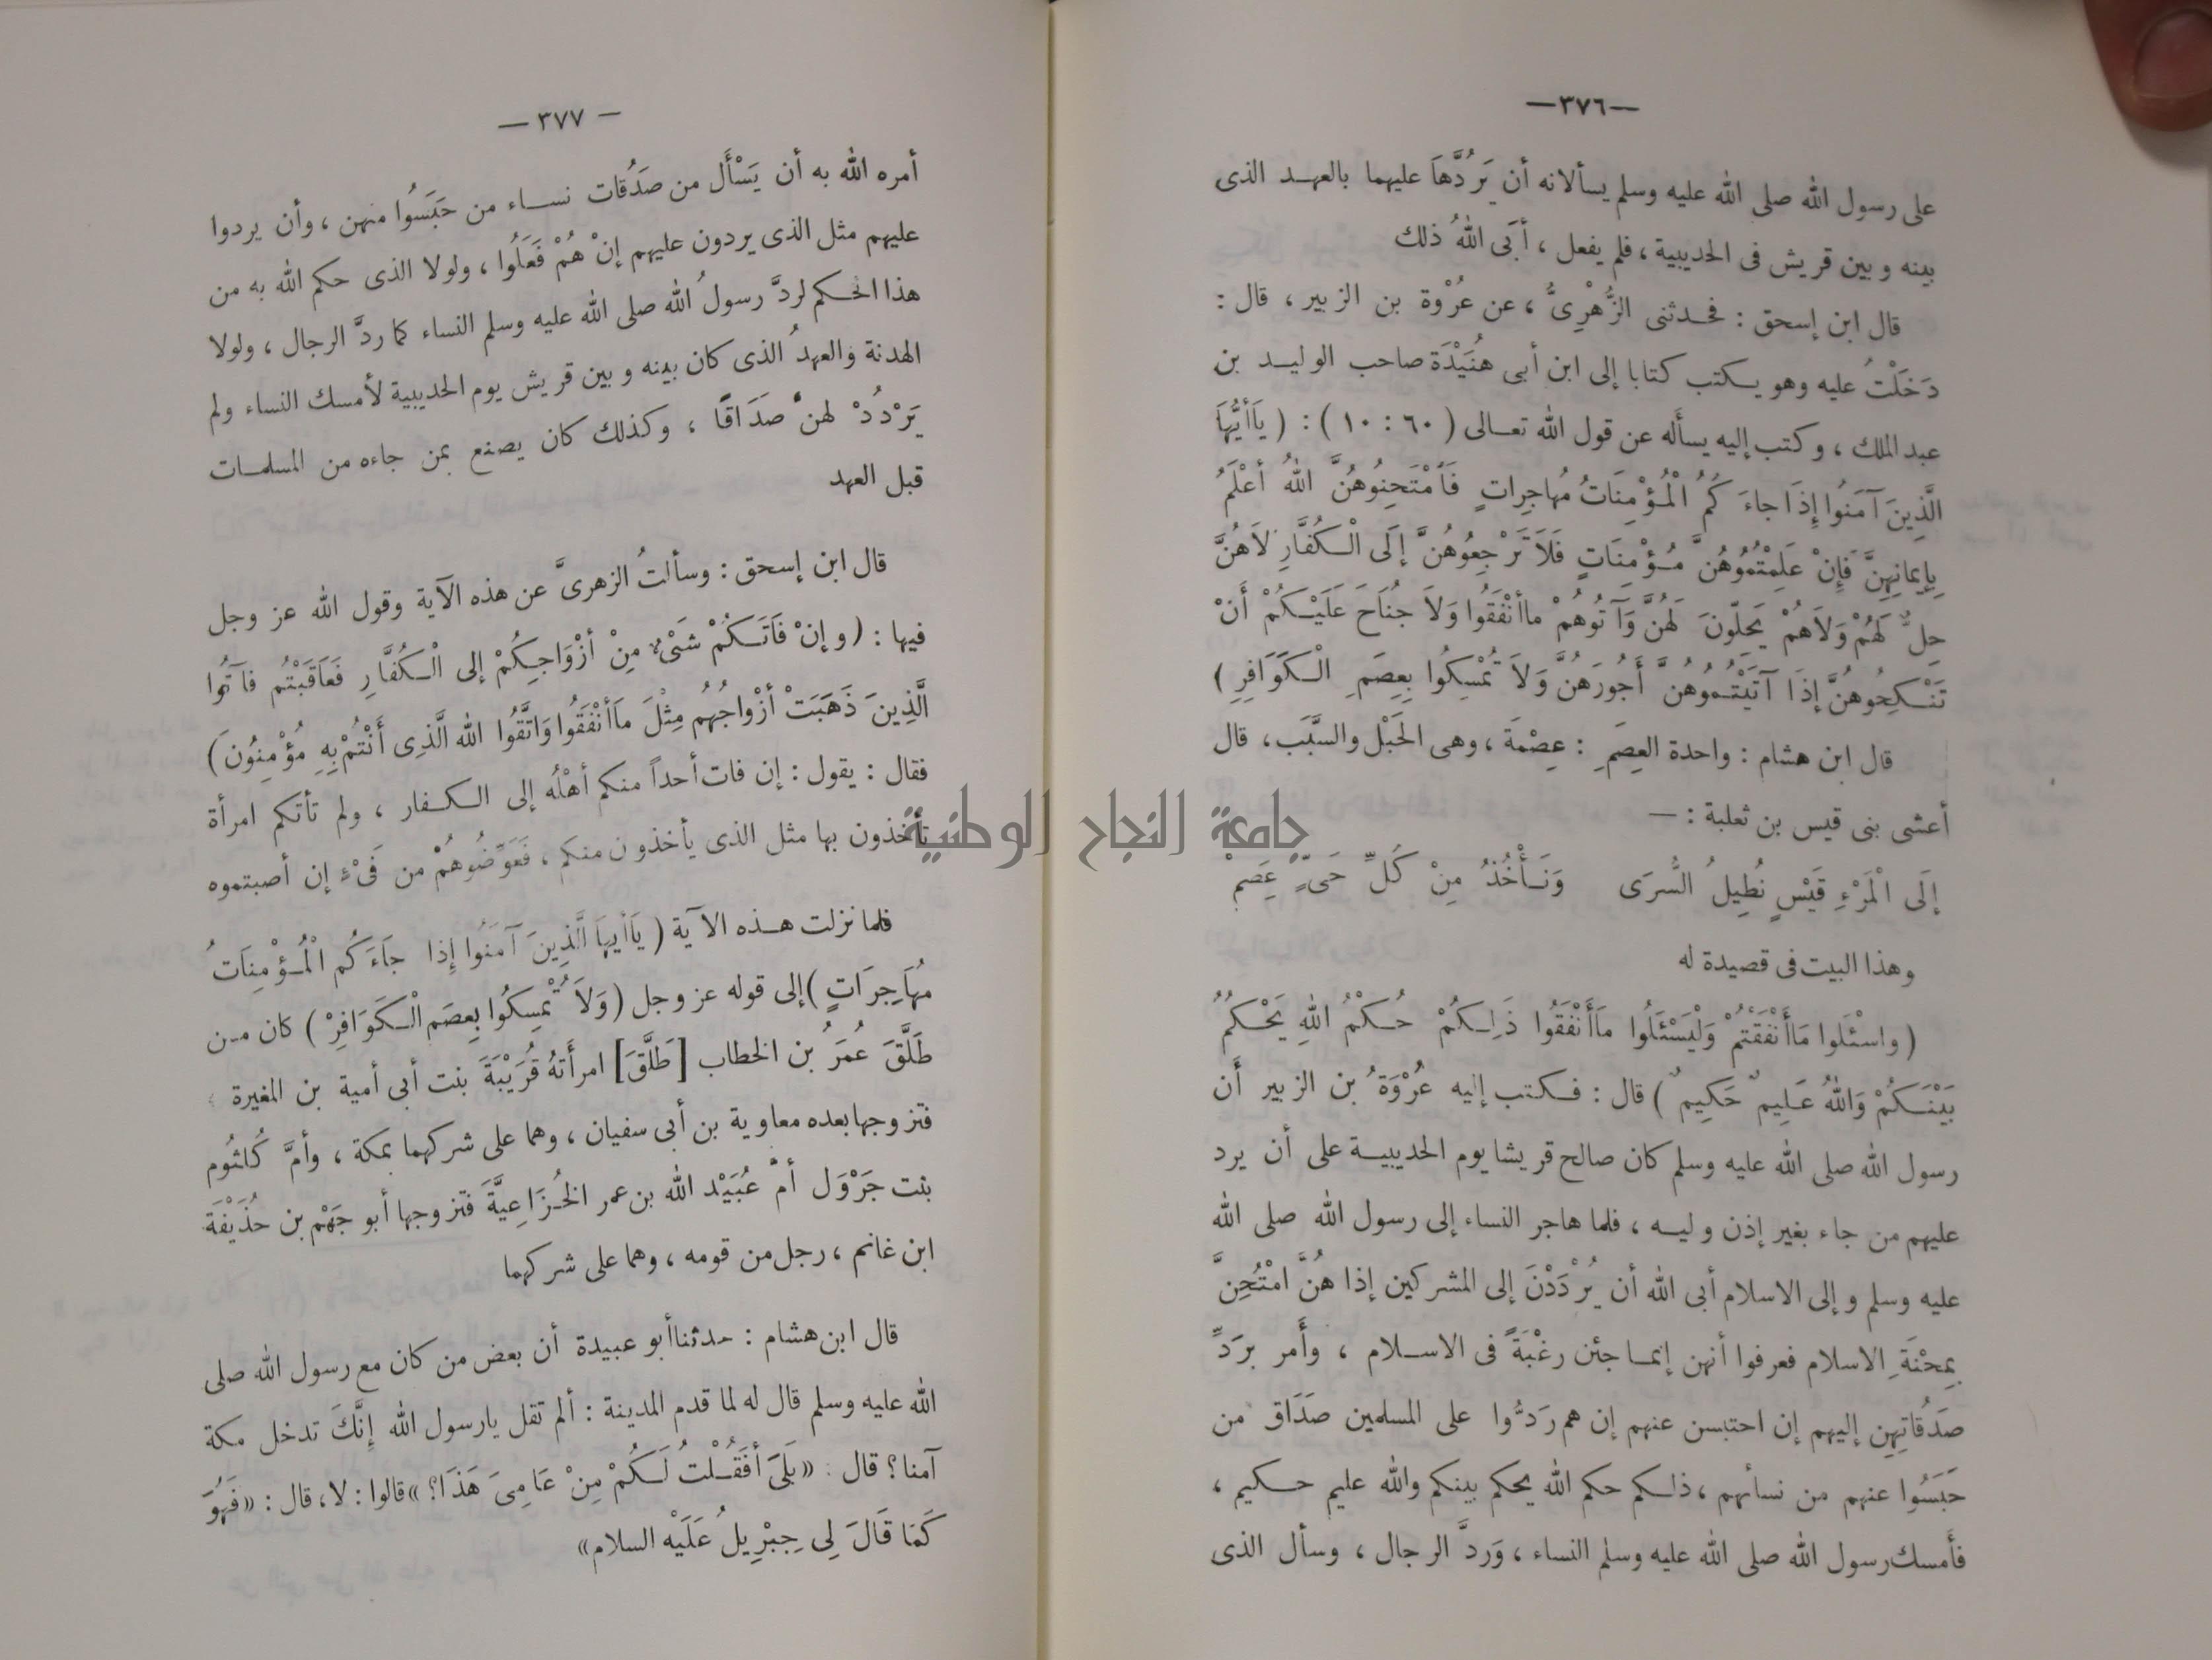 —٣٧٦—
على رسول الله صلى الله عليه وسلم يسألانه أن يَرُدَّهَا عليهما بالعهد الذى
بينه وبين قريش فى الحديبية، فلم يفعل، أبَى اللهُ ذلك
قال ابن إسحق : فحدثنى الزُّهْرِىُّ، عن عُرْوة بن الزبير، قال :
دَخَلْتُ عليه وهو يكتب كتابا إلى ابن أبى هُنَيْدَة صاحب الوليد بن
عبد الملك، وكتب إليه يسأَله عن قول الله تعالى (٦٠ : ١٠) : (يَاأَيُّهَا
الَّذِينَ آمَنُوا إِذَا جاءَ كُمُ الْمُؤْمِنَاتُ مُهاجِراتٍ فَامْتَحِنُوهُنَّ اللهُ أعْلَمُ
بِإيمَانِهِنَّ فَإِنْ عَلِمْتُمُوُهُنَّ مُؤْمِنَاتٍ فَلَا تَرْجِعُوهُنَّ إلَى الْكُفَّارِ لَاهُنَّ
حِلٌّ لَهُمْ وَلَاهُمْ يَحِلّونَ لَهُنَّ وَآتُوهُمْ ماأَنْفَقُوا وَلَا جُنَاحَ عَلَيْكُمْ أَنْ
تَنْكِحُوهُنَّ إذَا آتَيْتُمُوُهُنَّ أُجُورَهُنَّ وَلَا تُمْسِكُوا بِعِصَمِ الْكَوَافِرِ)
قال ابن هشام : واحدة العِصَمِ : عِصْمَة، وهى الحَبْل والسَّبَب، قال
أعشى بنى قيس بن ثعلبة : —
إلَى الْمَرْءِ قَيْسٍ نُطِيلُ السُّرَى وَنَأْخُذُ مِنْ كُلِّ حَىٍّ عِصَمْ
وهذا البيت فى قصيدة له
(واسْئَلوا مَاأَنْفَقْتُمْ وَلْيَسْئَلُوا مَاأَنْفَقُوا ذَلِكُمْ حُكْمُ اللهِ يَحْكُمُ
بَيْنَكُمْ وَاللهُ عَلِيمٌ حَكِيمٌ) قال : فكتب إليه عُرْوَةُ بن الزبير أَن
رسول الله صلى الله عليه وسلم كان صالح قريشا يوم الحديبية على أن يرد
عليهم من جاء بغير إذن وليه، فلما هاجر النساء إلى رسول الله صلى الله
عليه وسلم وإلى الاسلام أبى الله أن يُرْدَدْنَ إلى المشركين إذا هُنَّ امْتُحِنَّ
بِمِحْنَةِ الاسلام فعرفوا أنهن إنما جئن رغْبَةً فى الاسلام، وأَمر بِرَدِّ
صَدُقاتِهِن إليهم إن احتبسن عنهم إن هم رَدُّوا على المسلمين صَدَاق من
حَبَسُوا عنهم من نسائهم، ذلكم حكم الله يحكم بينكم والله عليم حكيم،
فأَمسك رسول الله صلى الله عليه وسلم النساء، وَردَّ الرجال، وسأل الذى
— ٣٧٧ —
أمره الله به أن يَسْأَل من صَدُقات نساء من حَبَسُوا منهن، وأن يردوا
عليهم مثل الذى يردون عليهم إنْ هُمْ فَعَلُوا، ولولا الذى حكم الله به من
هذا الحكم لردَّ رسولُ الله صلى الله عليه وسلم النساء كما ردَّ الرجال، ولولا
الهدنة والعهدُ الذى كان بينه وبين قريش يوم الحديبية لأمسك النساء ولم
يَرْدُدْ لهنَّ صَدَاقًا، وكذلك كان يصنع بمن جاءه من المسلمات
قبل العهد
قال ابن إسحق : وسألتُ الزهرىَّ عن هذه الآية وقول الله عز وجل
فيها : (وإنْ فَاتَكُمْ شَىْءٌ مِنْ أزْوَاجِكُمْ إلى الْكُفَّارِ فَعَاقَبْتُم فآتُوا
الَّذِينَ ذَهَبَتْ أزْواجُهُم مِثْلَ مَاأنْفَقُوا وَاتَّقُوا الله الَّذِى أَنْتُمْ بِهِ مُؤْمِنُونَ)
فقال : يقول : إن فات أحداً منكم أهْلُه إلى الكفار، ولم تأتكم امرأة
تأخذون بها مثل الذى يأخذون منكم، فَعَوِّضُوهُمْ من فَىْءٍ إن أصبتموه
فلما نزلت هذه الآية (يَاأيهَا الَّذِينَ آمَنُوا إِذا جَاءَكُم الْمُؤْمِنَاتُ
مُهَاجِرَاتٍ) إلى قوله عز وجل (وَلَا تُمْسِكُوا بِعِصَمِ الْكَوَافِرْ) كان من
طَلَّقَ عُمَرُ بن الخطاب [طَلَّقَ] امرأَتهُ قُرَيْبَةَ بنت أبى أمية بن المغيرة،
فتزوجها بعده معاوية بن أبى سفيان، وهما على شركهما بمكة، وأمَّ كُلثُوم
بنت جَرْوَل أمَّ عُبَيْد الله بن عمر الخُزَاعِيَّةَ فتزوجها أبو جَهْم بن حُذَيْفَة
ابن غانم، رجل من قومه، وهما على شركهما
قال ابن هشام : حدثنا أبو عبيدة أن بعض من كان مع رسول الله صلى
الله عليه وسلم قال له لما قدم المدينة : ألم تقل يارسول الله إنَّكَ تدخل مكة
آمنا؟ قال : «بَلَى أفَقُلْتُ لَكُمْ مِنْ عَامِىَ هَذَا؟» قالوا : لا، قال : «فَهُوَ
كَمَا قَالَ لِى جِبْرِيلُ عَلَيْه السلام»
جامعة النجاح الوطنية